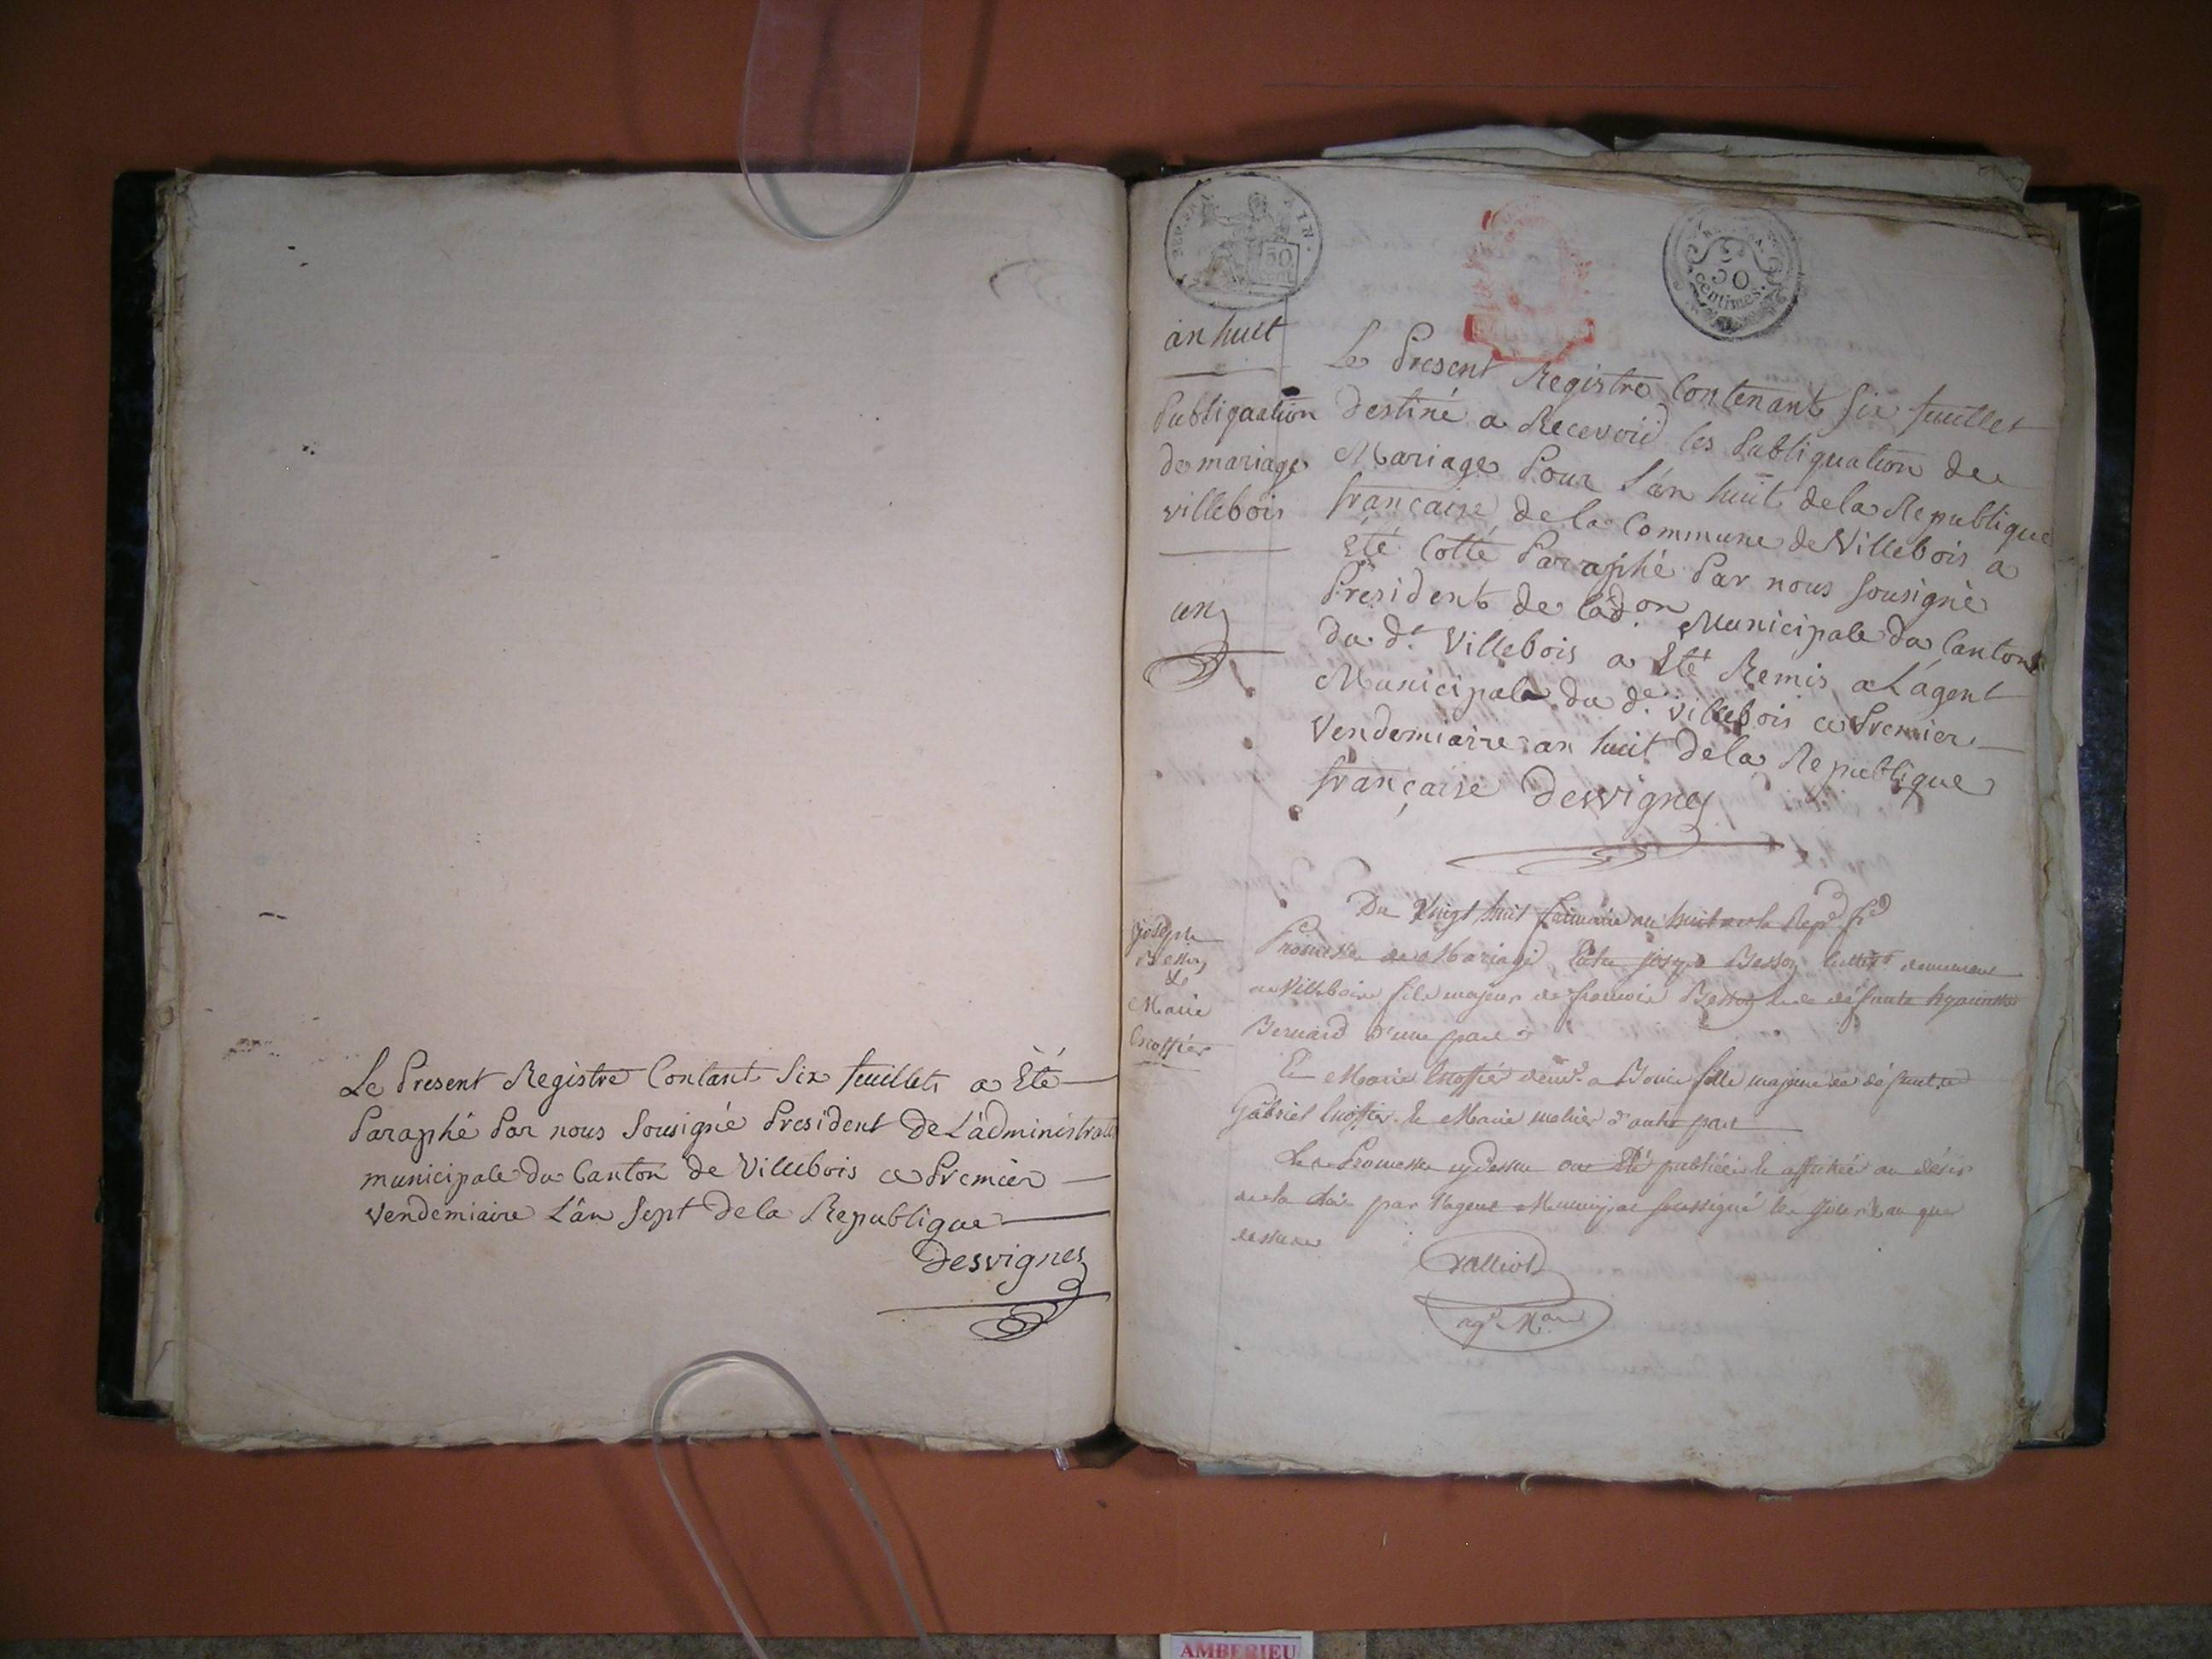 Le Present Registre Contant Six feuillets a Eté
Paraphé Par nous Sousigné President De L'administrat
municipale du Canton de Villebois ce Premier
Vendemiaire L'an Sept de la Republique
Desvignes
50
30
Centimes
an huit
Publiquation
de mariage
villebois
un
Le Present Registre Contenant Six feuillet
Destiné a Recevoir les Publiquation de
Mariage Pour L'an huit de la Republique
française de la Commune de Villebois a
Eté Cotté Paraphé Par nous Sousigné
President de l'ad.on Municipale du Canton
du d.t Villebois a Eté Remis a L'agent
Municipale du d.t Villebois ce Premier
Vendemiaire an huit de la Republique
française Desvignes
Joseph
Besson
&
Marie
Du Vingt huit frimaire an huit de la Rep.e fr.e
Promesse de Mariage Entre joseph Besson demeurant
a Villebois fils majeur de francois Besson & de défunte
Bernard d'une part
Et Marie fille majeure de défunt
Gabriel & Marie d'autre part
Les Promesses cydessus ont Eté publiée & affichée au désir
de la Loi par l'agent Municipal soussigné les jour & an que
dessus
Valliod
ag.t M.al
AMBERIEU